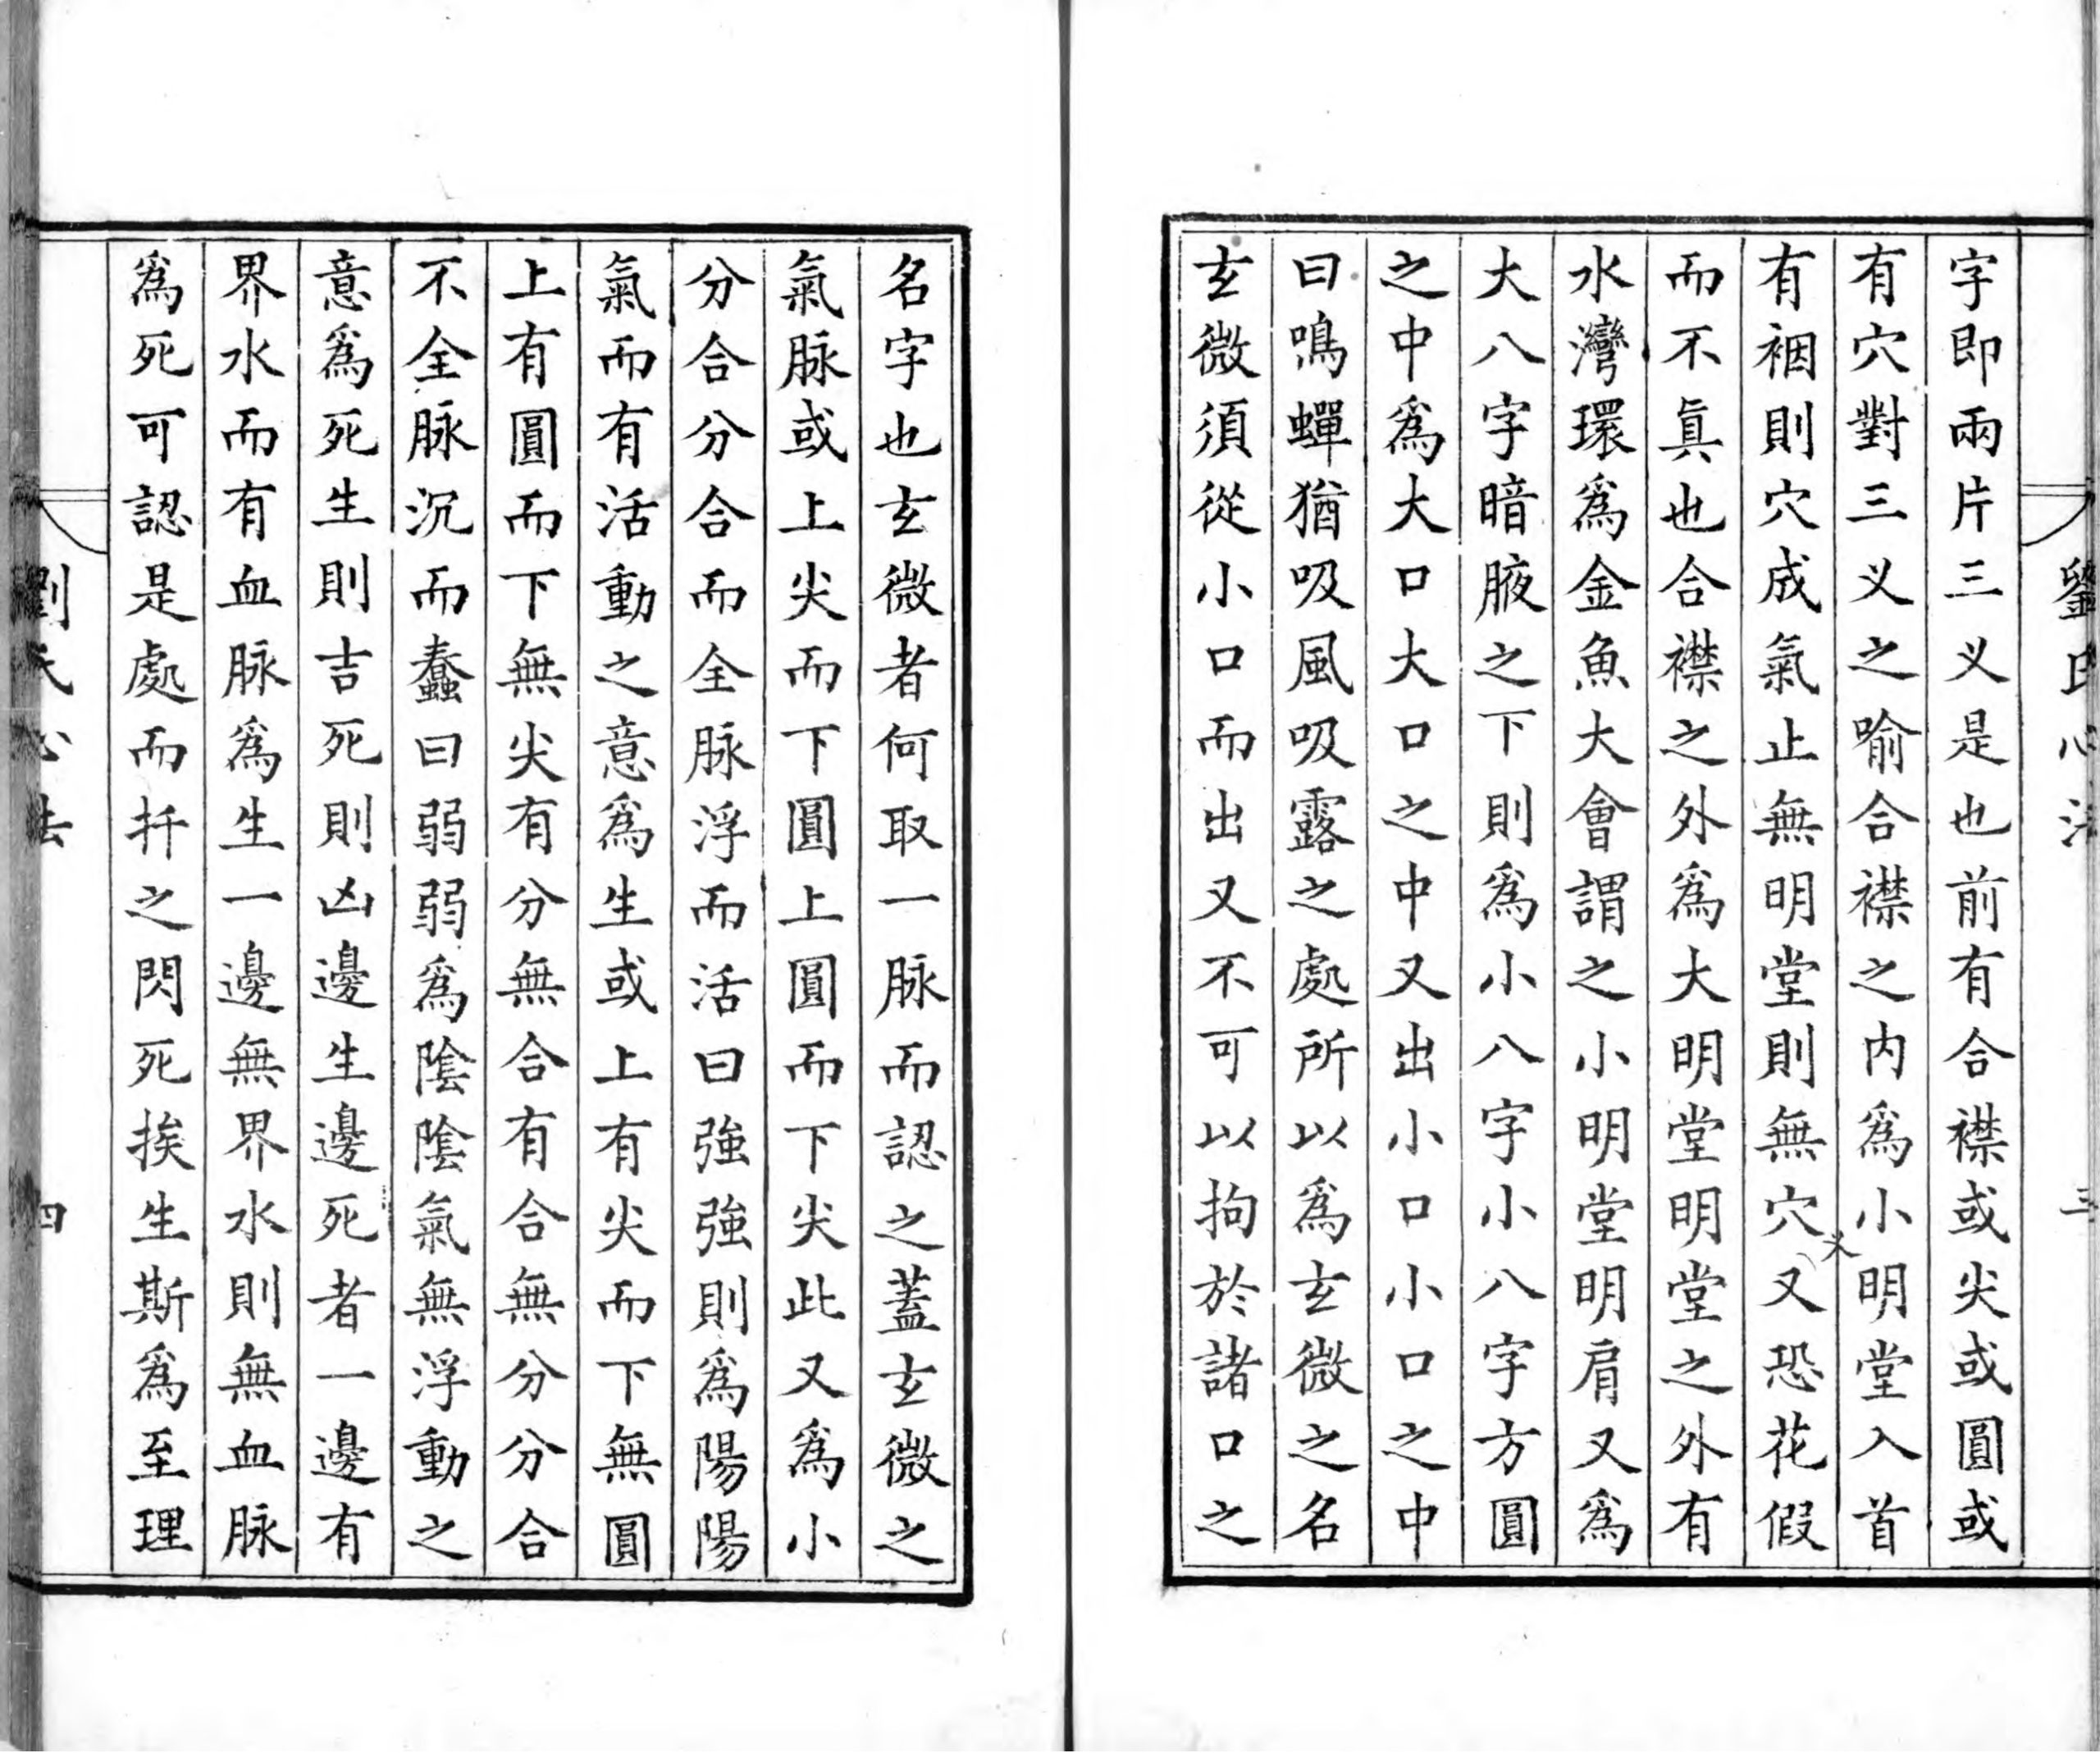 劉氏心法
三
字即兩片三义是也前有合襟或尖或圓或
有穴對三义之喻合襟之内爲小明堂入首
有裀則穴成氣止無明堂則無穴又恐花假
义
而不眞也合襟之外爲大明堂明堂之外有
水灣環爲金魚大會謂之小明堂明肩又爲
大八字暗腋之下則爲小八字小八字方圓
之中爲大口大口之中又出小口小口之中
曰鳴蟬猶吸風吸露之處所以爲玄微之名
玄微須從小口而出又不可以拘於諸口之
名字也玄微者何取一脉而認之蓋玄微之
氣脉或上尖而下圓上圓而下尖此又爲小
分合分合而全脉浮而活曰強強則爲陽陽
氣而有活動之意爲生或上有尖而下無圓
上有圓而下無尖有分無合有合無分分合
不全脉沉而蠢曰弱弱爲陰陰氣無浮動之
意爲死生則吉死則凶邊生邊死者一邊有
界水而有血脉爲生一邊無界水則無血脉
爲死可認是處而扦之閃死挨生斯爲至理
劉氏心法
四